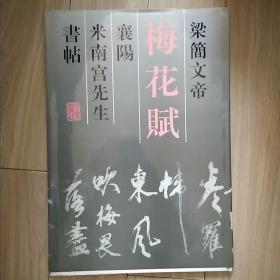 梁簡文帝
梅花賦
襄陽
米南宮先生
書帖
羅
東風
吹梅畏
落盡